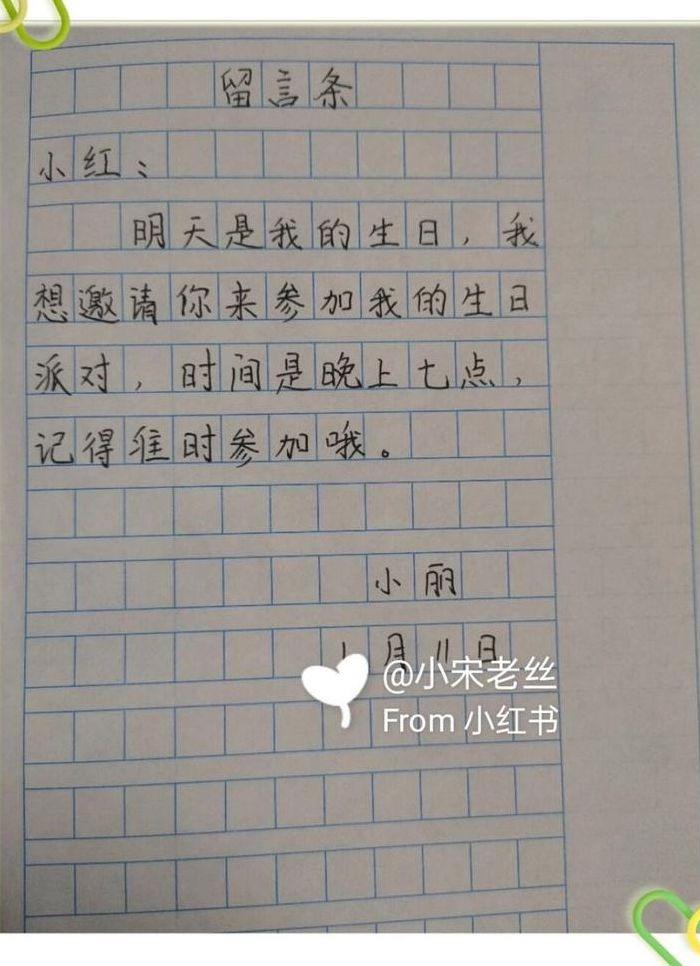 留言条
小红：
明天是我的生日，我
想邀请你来参加我的生日
派对，时间是晚上七点，
记得准时参加哦。
小丽
1月11日
@小宋老丝
From 小红书